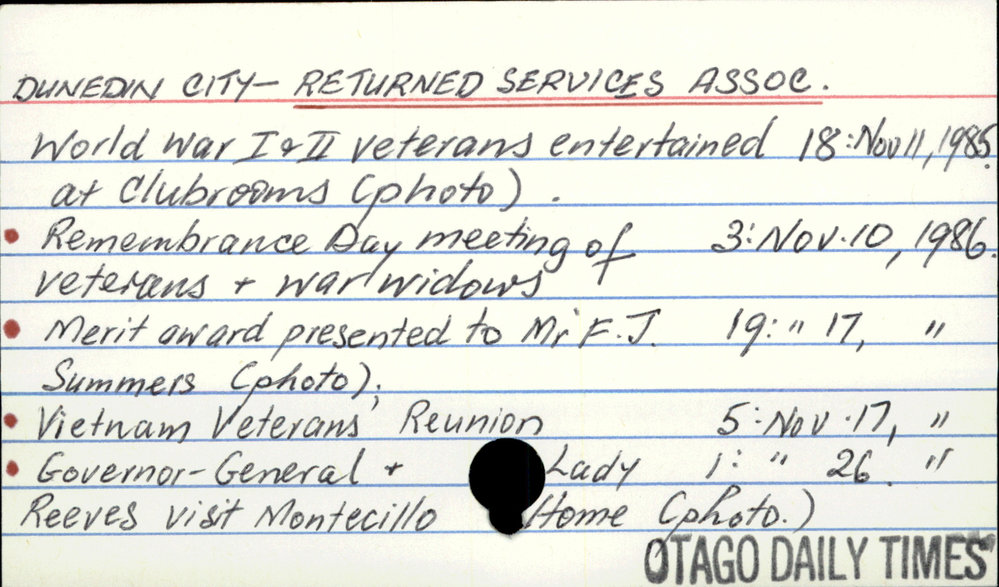 DUNEDIN CITY- RETURNED SERVICES ASSOC.
World War I & II veterans entertained 18:Nov 11, 1985.
at Clubrooms (photo).
• Remembrance Day meeting of 3:Nov.10, 1986.
veterans + war widows
• Merit award presented to Mr F.J. 19: " 17, "
Summers (photo);
• Vietnam Veterans' Reunion 5:Nov.17, "
• Governor-General + Lady 1: " 26. "
Reeves visit Montecillo Home (photo.)
OTAGO DAILY TIMES